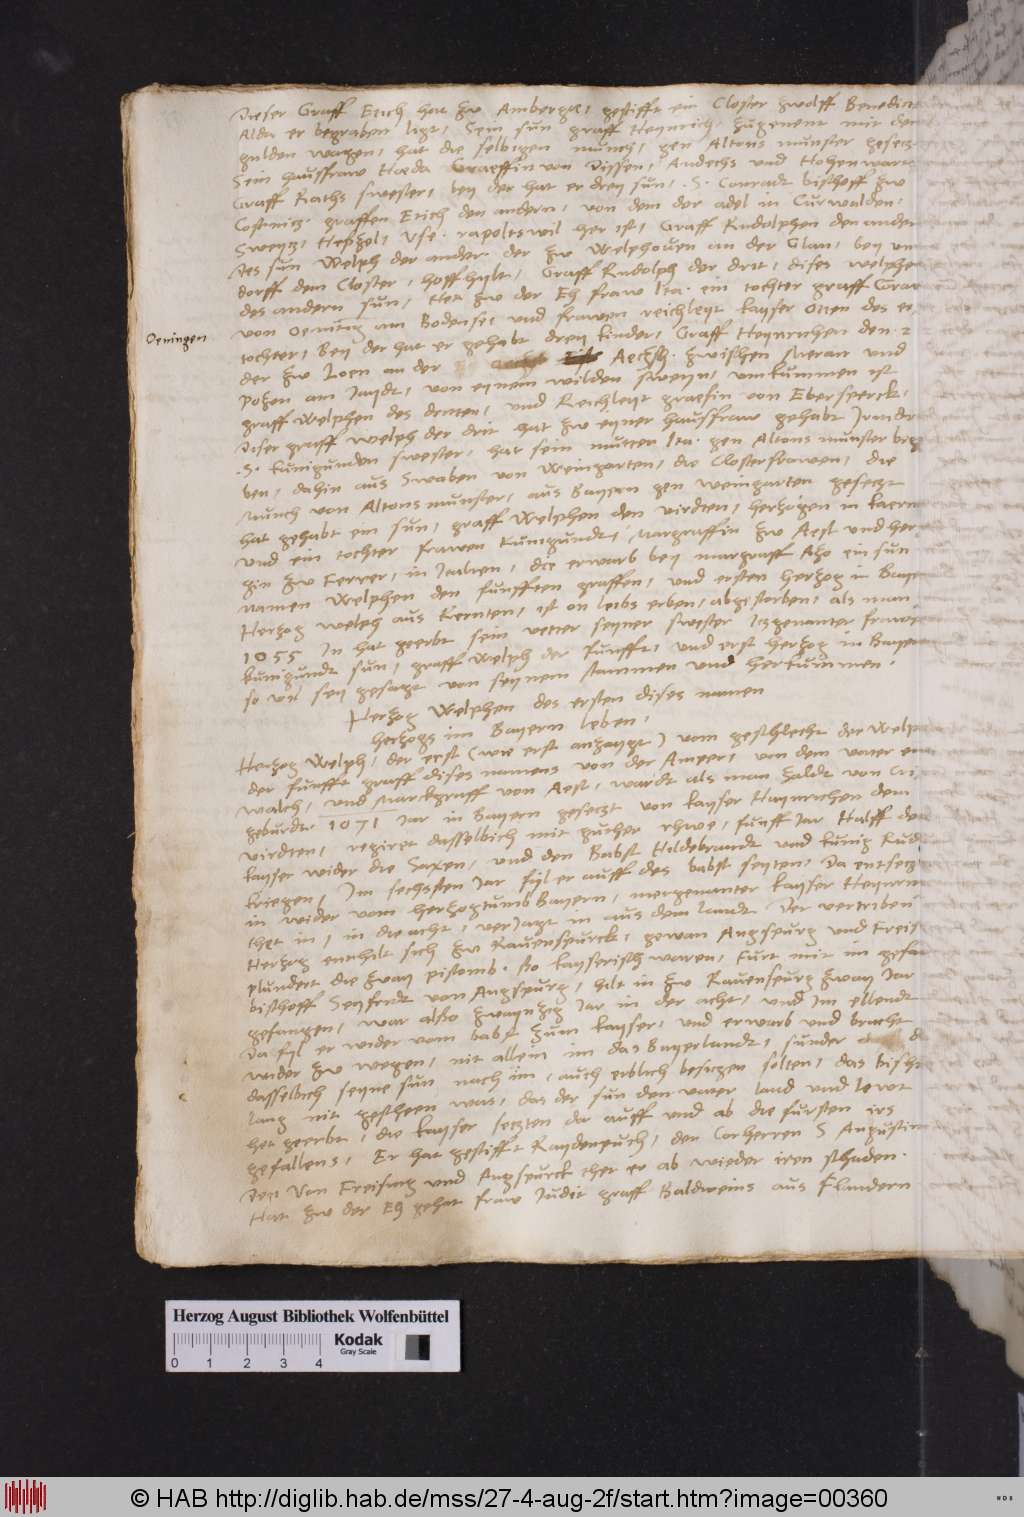 Dieser Graff Etich hat zw Ambergæ, gestifft ein Closter zwolff Benedict
Alda er begraben ligt, Sein sun graff Heynrich, zugenent mit dem
gulden wagen, hat die selbigen munch, gen Altons munster gesecz
Sein hausfraw Hæda Graeffin von Dissen, Andechs und Hohenwart
Graff Raths swester, bey der hat er drey sun, .S. Conradt bischoff zw
Costnicz. graffen Etich den andern, von dem der adel in Curwalden,
Sweycz, Heszgel, Vse. rapoltswil her ist, Graff Rudolphen den ander
Des sun Welph der ander der zw Welphowen an der Glan, bey
dorff dem Closter, hoff hylt, Graff Rudolph der drit, dises welphen
des andern sun, Het zw der Eh fraw Ita. ein tochter graff
Oeningen
von Oening am Bodense, und frawen reichleyt kayser Otten des
tochter, Bey der hat er gehabt drey kinder, Graff Heynrichen den. 2
der zw Loen an der Aechsh. zwischen Meran und
Pozen am Jaydt, von eynem wilden sweyn, umkummen ist
graff Welphen des dritten, und Reichleyt graefin von Ebersperck,
Diser graff Welph der drit hat zw eyner hausfraw gehabt
.S. kunigunden swester, hat sein mutter Ita. gen Altons munster beg
ben, dahin aus Swaben von Weingarten, die Closterfrawen, die
Munch von Altons munster, aus Bayern gen weingarten gesetzt
hat gehabt ein sun, graff Welphen den virdten, herzogen in kaern
und ein tochter frawen Kunigundt, Margraffin zw Aest und her
gin zw Ferrer, in Italien, die erwarb bey margraff Azo ein sun
namen Welphen den funfften graffen, und ersten herzog in Baye
Herzog welph aus Kernten, ist on leibs erben, abgestorben, als man
1055 In hat geerbt sein vetter seyner swester Itzgenanter fraw
kunigundt sun, graff Welph der funfft, und erst herzog in Bayern
so vil sey gesagt von seynem stammen und herkummen.
Herzog Welphen des ersten dises namen
herzogs im Bayern leben,
Herzog Welph, der erst (wie erst anzaygt) vom geschlecht der Welph
der funfft graff dises namens von der Amper, von dem vater ein
walch, und Marckgraff von Aest, wardt als man zaldt von Cri
geburdt 1071 Jar in Bayern gesetzt von kayser Haynrichen dem
virdten, regiret dasselbich mit guther rhwe, funff Jar Halff dem
kayser wider die Saxen, und den Babst Hildebrandt und kunig Rud
kriegen, Im sechsten Jar fyl er auff des babst seyten, Da entsetz
in wider vom herzogtumb Bayern, mergenanter kayser Heynri
thet in, in die acht, verjagt in aus dem landt Der vertriben
Herzog enthilt sich zw Rauenspurck, gewan Augspurg und Freis
plundert die zway pistomb. so kayserisch waren, furt mit im gefan
bischoff Seyfridt von Augspurg, hilt in zw Rauenspurg zway Jar
gefangen, war also zwaynzig Jar in der acht, und im ellendt
Da fyl er wider vom babst zum kayser, und erwarb und bracht
wider zw wegen, nit allein im das Bayerlandt, sunder
dasselbich seyne sun nach im, auch erblich besiczen solten, das bisch
lang nit geschehen was, das der sun den vater land und lewt
het geerbt, die kayser setzten da auff und ab die fursten irs
gefallens, Er hat gestifft Raydenpuch, den Corherren S Augustin
Den Von Freising und Augspurck thet er ab wieder iren schaden.
Hat zw der Eh gehat fraw Judit graff Baldweins aus Flandern
Herzog August Bibliothek Wolfenbüttel
Kodak
Gray Scale
0 1 2 3 4
© HAB http://diglib.hab.de/mss/27-4-aug-2f/start.htm?image=00360